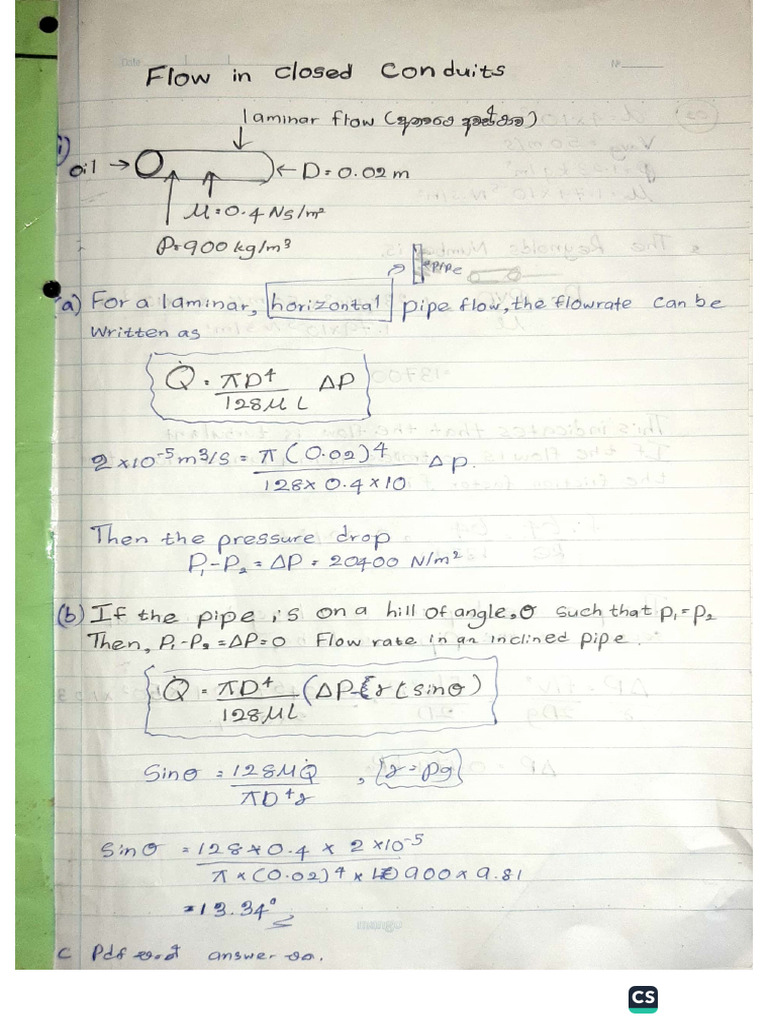 Flow in closed Conduits
laminar flow (
i)
oil → ← D = 0.02 m
μ = 0.4 Ns/m²
ρ = 900 kg/m³
pipe
a) For a laminar, horizontal pipe flow, the flowrate can be
written as
Q̇ = πD⁴ / 128μL ΔP
2 × 10⁻⁵ m³/s = π(0.02)⁴ / 128 × 0.4 × 10 Δp.
Then the pressure drop
P₁ - P₂ = ΔP = 20400 N/m²
(b) If the pipe is on a hill of angle, θ such that p₁ = p₂
Then, P₁ - P₂ = ΔP = 0 Flow rate in an inclined pipe.
Q̇ = πD⁴ / 128μL (ΔP - γLsinθ)
Sinθ = 128μQ̇ / πD⁴γ , γ = ρg
Sinθ = 128 × 0.4 × 2 × 10⁻⁵ / π × (0.02)⁴ × 900 × 9.81
= 13.34°
c Pdf answer
CS